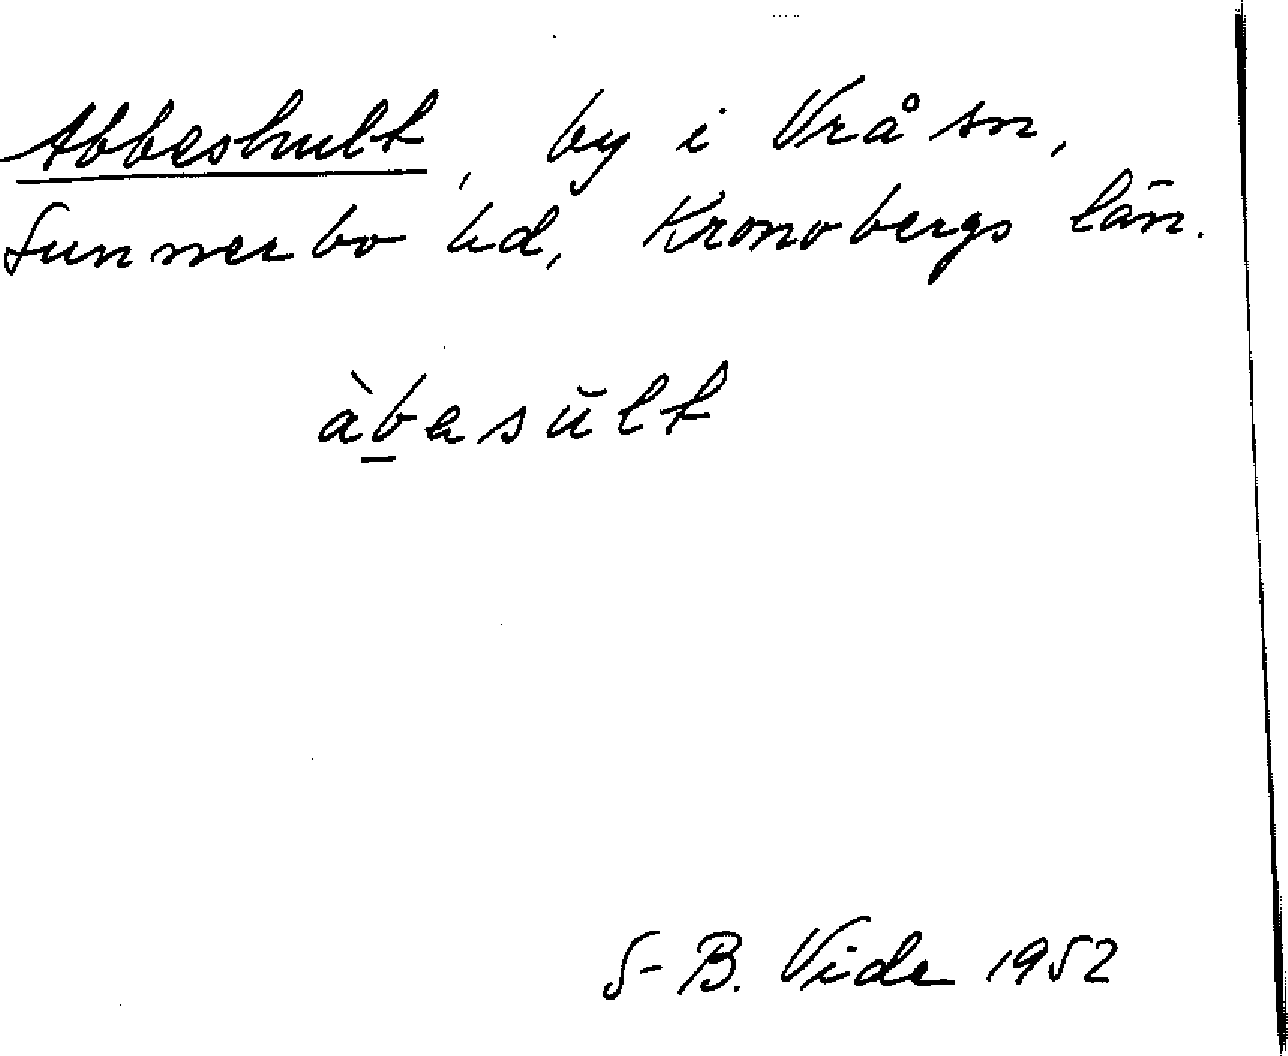 Abbeshult, by i Vrå sn,
Sunnerbo hd, Kronobergs län.
àb̲asŭlt
S-B. Vide 1952